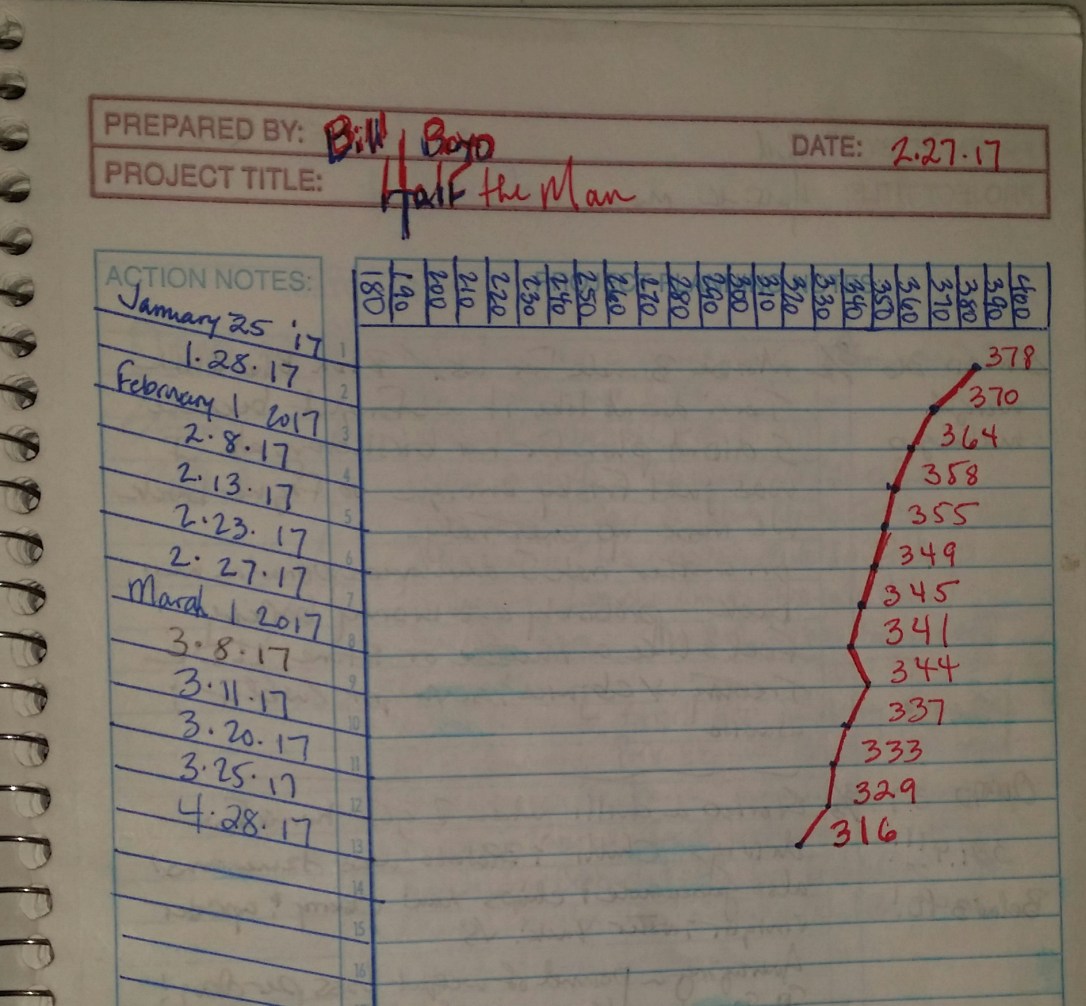 PREPARED BY: Bill Boyo DATE: 2.27.17
PROJECT TITLE: Half the Man
ACTION NOTES: 180 190 200 210 220 230 240 250 260 270 280 290 300 310 320 330 340 350 360 370 380 390 400
January 25 '17 1 378
1.28.17 2 370
February 1 2017 3 364
2.8.17 4 358
2.13.17 5 355
2.23.17 6 349
2.27.17 7 345
March 1 2017 8 341
3.8.17 9 344
3.11.17 10 337
3.20.17 11 333
3.25.17 12 329
4.28.17 13 316
14
15
16